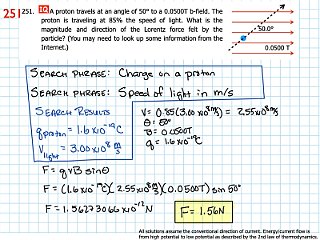 251 251. 1Q A proton travels at an angle of 50° to a 0.0500T b-field. The
proton is traveling at 85% the speed of light. What is the
magnitude and direction of the Lorentz force felt by the
particle? (You may need to look up some information from the
Internet.)
50.0°
0.0500 T
SEARCH PHRASE: Charge on a proton
SEARCH PHRASE: Speed of light in m/s
SEARCH RESULTS
q proton = 1.6x10⁻¹⁹C
V light = 3.00x10⁸ m/s
V = 0.85(3.00x10⁸ m/s) = 2.55x10⁸ m/s
θ = 50°
B = 0.0500T
q = 1.6x10⁻¹⁹C
F = qvB sinθ
F = (1.6x10⁻¹⁹C)(2.55x10⁸ m/s)(0.0500T) sin 50°
F = 1.56273066x10⁻¹²N
F = 1.56N
All solutions assume the conventional direction of current. Energy/current flow is
from high potential to low potential as described by the 2nd law of thermodynamics.